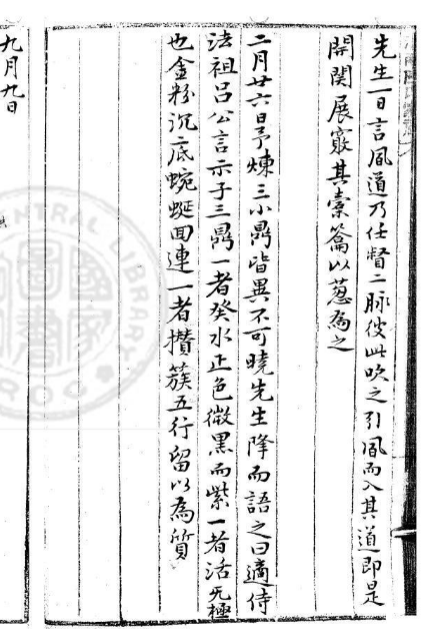 先生一日言風道乃任督二脉彼此吹之引風而入其道即是
開関展竅其橐籥以葱為之
二月廿六日予煉三小鼎皆異不可曉先生降而語之曰適侍
法祖呂公言示子三鼎一者癸水正色微黑而紫一者活无極
也金粉沉底蜿蜒回連一者攅簇五行留以為質
九月九日